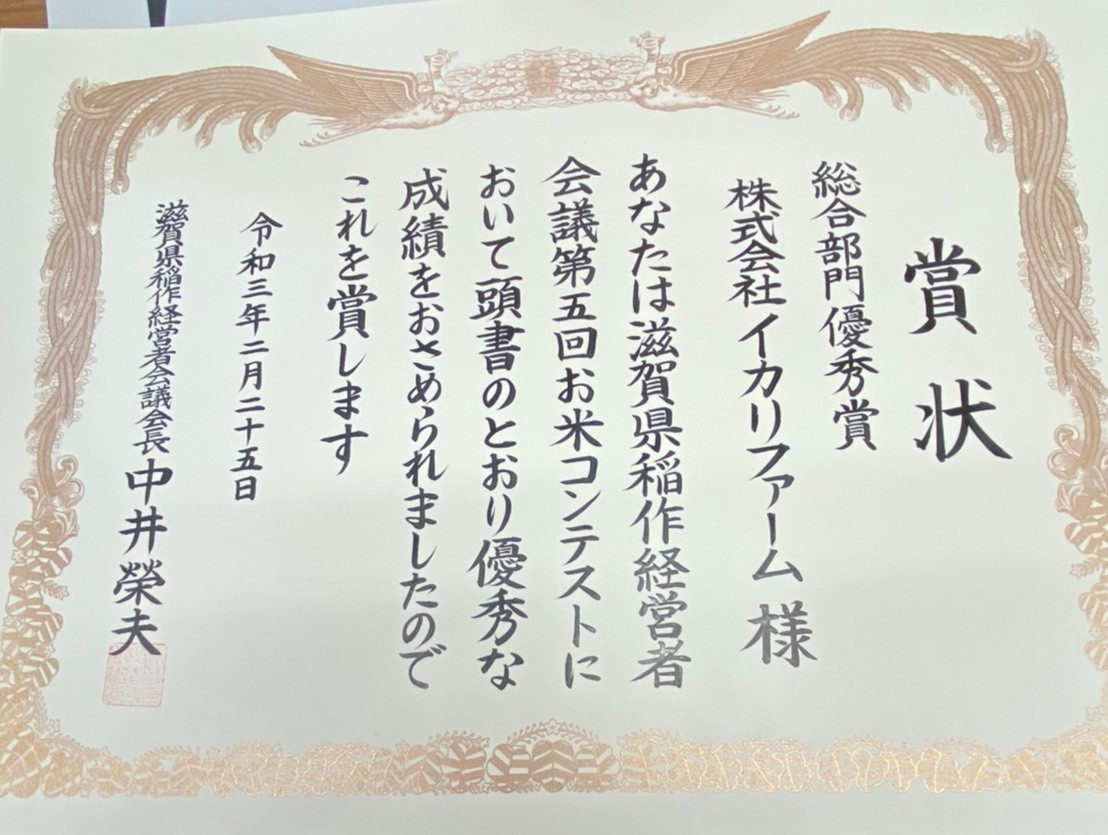 賞状
総合部門優秀賞
株式会社イカリファーム 様
あなたは滋賀県稲作経営者
会議第五回お米コンテストに
おいて頭書のとおり優秀な
成績をおさめられましたので
これを賞します
令和三年二月二十五日
滋賀県稲作経営者会議会長 中井榮夫